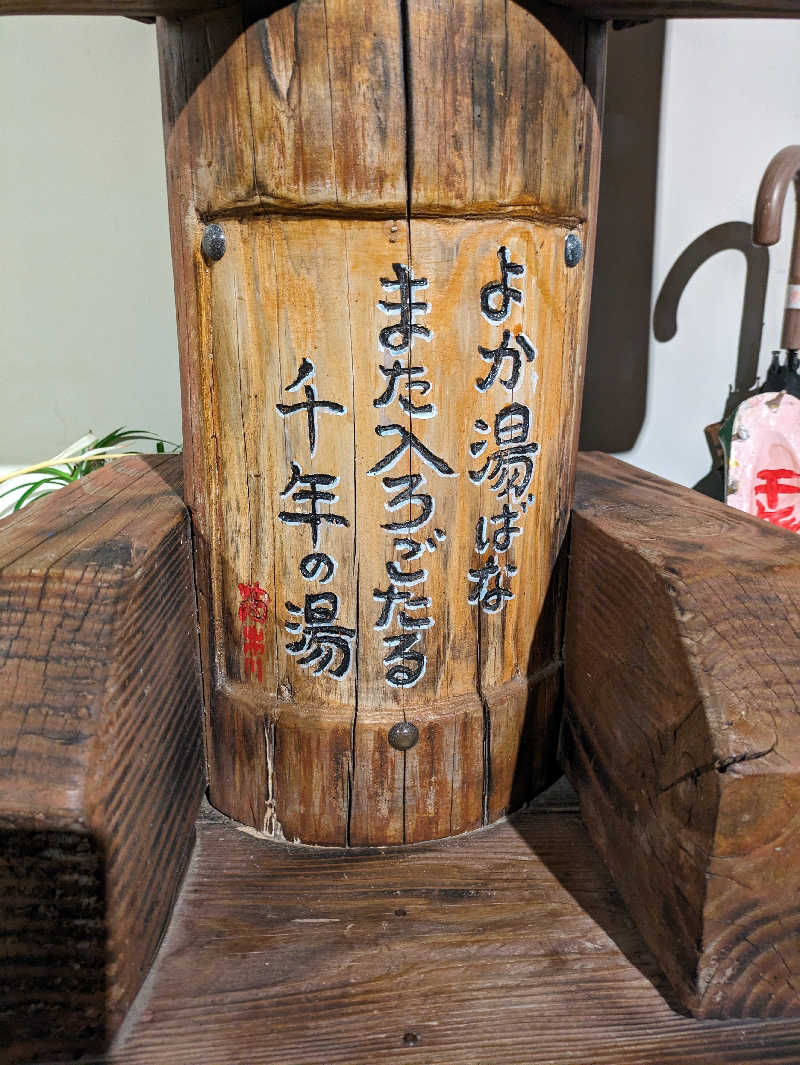 よか湯ばな
また入ろごたる
千年の湯